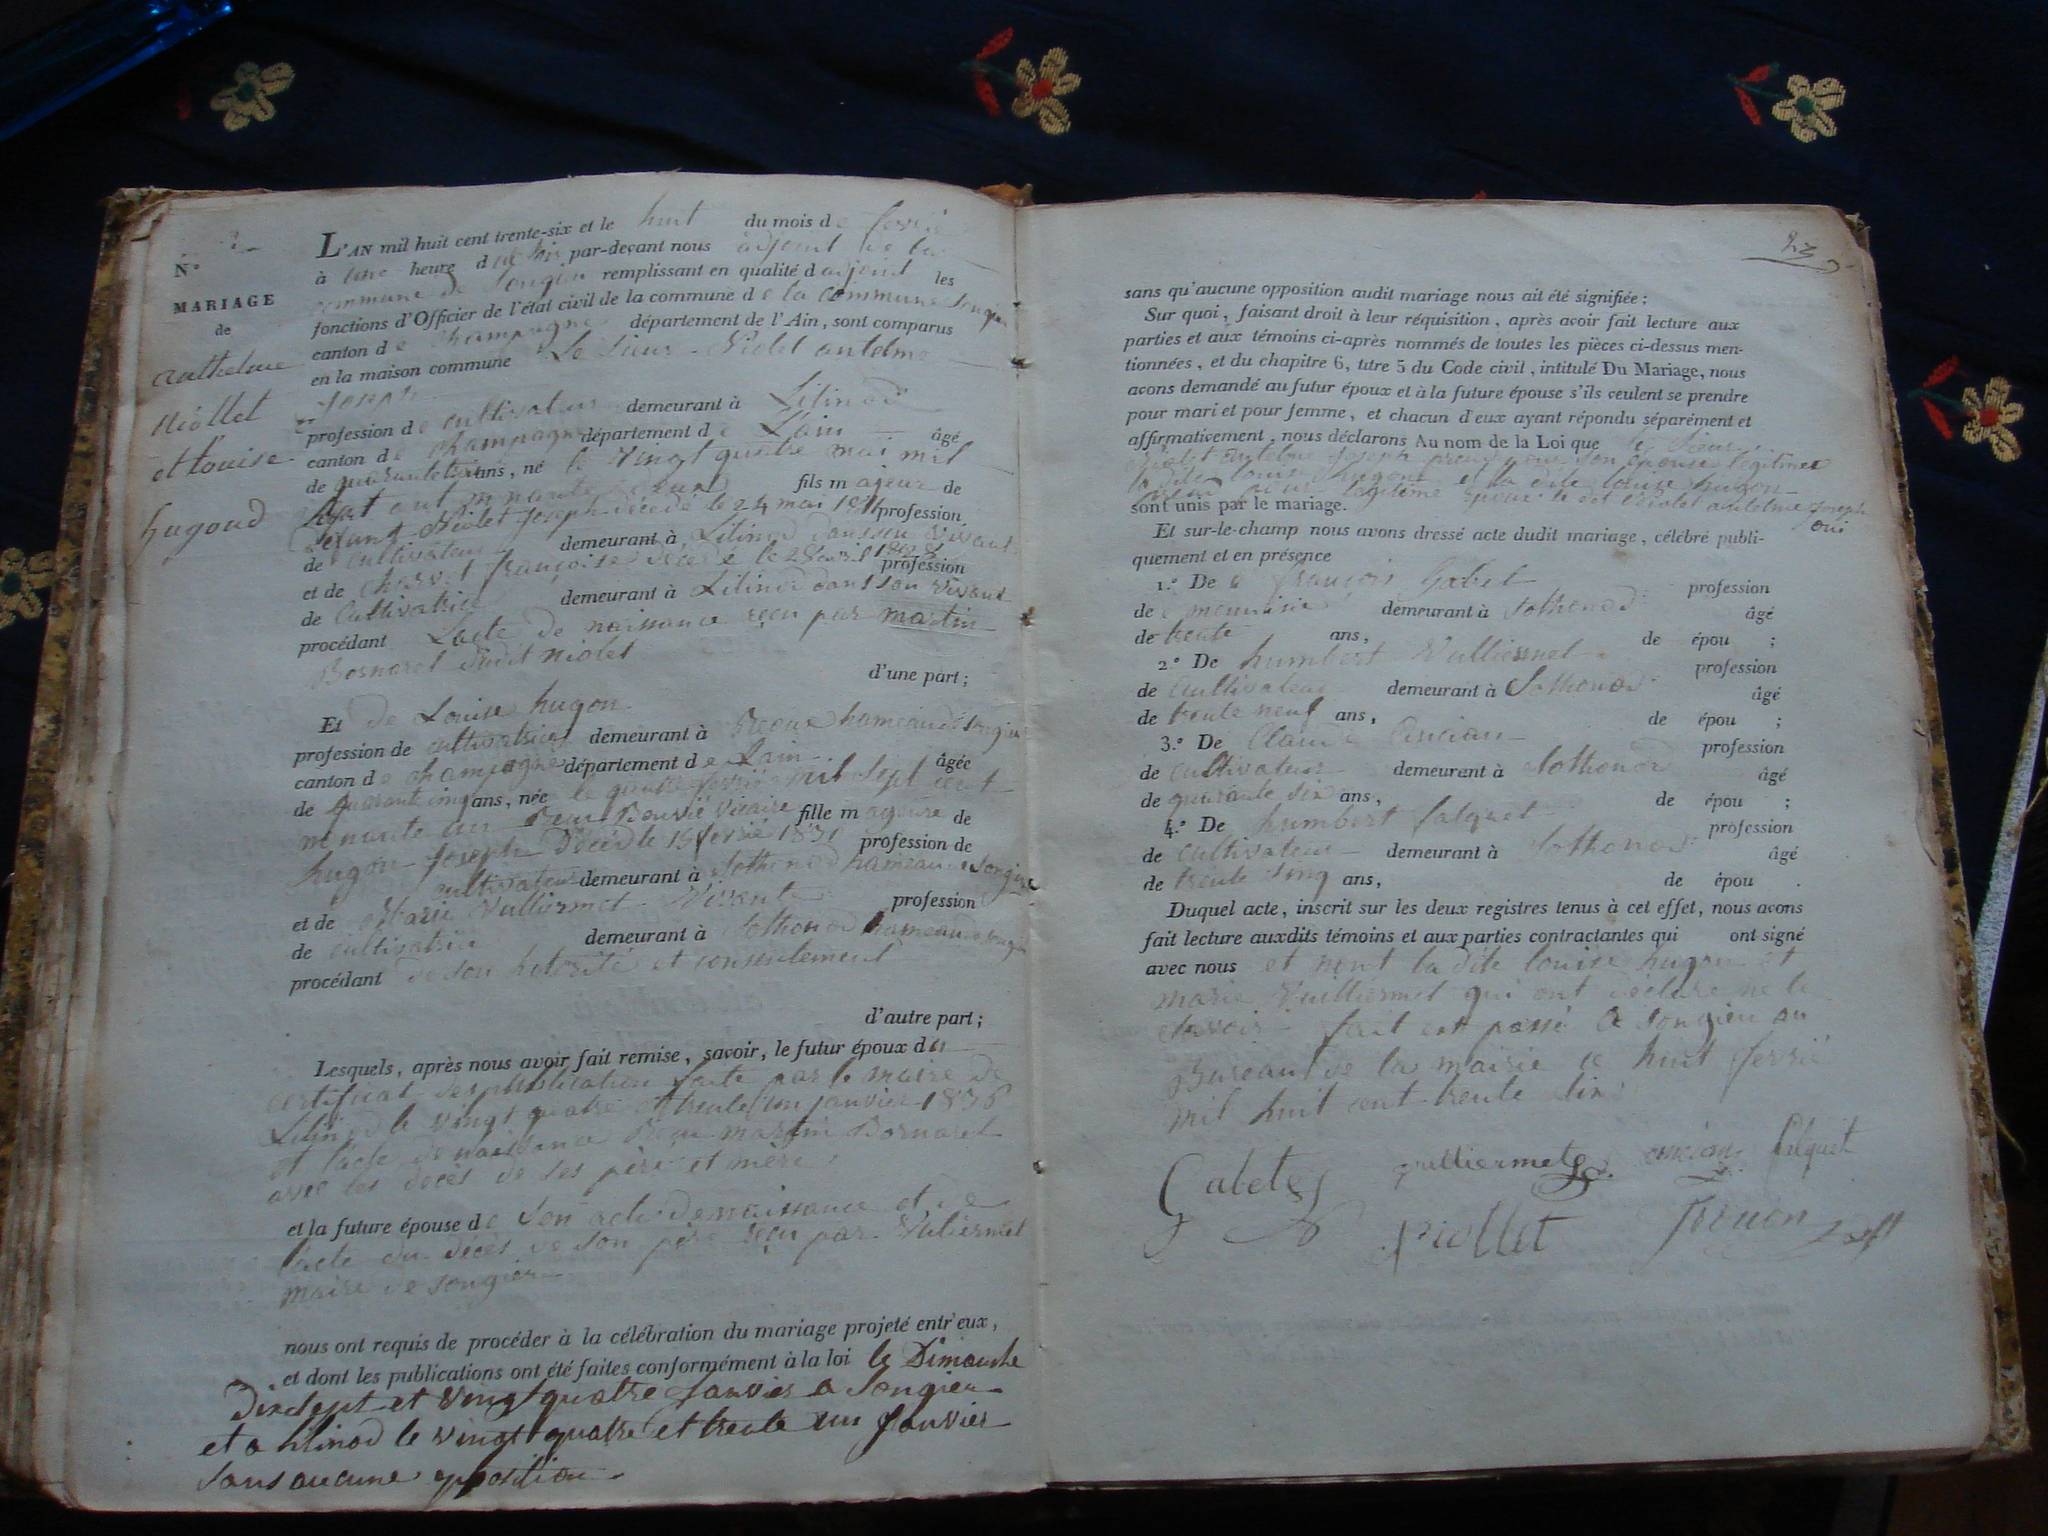 N°
MARIAGE
de
anthelme
niollet
et Louise
hugoud
L'AN mil huit cent trente-six et le huit du mois de fevrié
à une heure du soir par-devant nous adjoint de la
commune de Songieu remplissant en qualité d adjoint les
fonctions d'Officier de l'état civil de la commune de la commune Songieu
canton de Champagne département de l'Ain, sont comparus
en la maison commune Le Sieur Niolet antelme
Joseph
profession de cultivateur demeurant à Lilinod
canton de champagne département de Lain âgé
de quarante ans, né le vingt quatre mai mil
Sept cent nonante fils majeur de
defunt Niolet Joseph décédé le 24 mai 18 profession
de cultivateur demeurant à Lilinod dans son vivant
et de Charvet françoise décédé le 28 avril 1828 profession
de Cultivatrice demeurant à Lilinod dans son vivant
procédant Lacte de naissance reçu par martin
Bornarel dudit niolet
d'une part ;
Et de Louise hugon
profession de cultivatrice demeurant à hameau de Songieu
canton de champagne département de Lain âgée
de quarante cinq ans, née le quatre fevrié mil sept cent
nonante un vicaire fille majeure de
hugon Joseph Décédé le 15 fevrié 1831 profession de
cultivateur demeurant à Sothonod hameau de Songieu
et de Marie Vulliermet Vivante profession
de cultivatrice demeurant à Sothonod hameau de Songieu
procédant de son hotorité et consentement
d'autre part ;
Lesquels, après nous avoir fait remise, savoir, le futur époux du
certificat des publication faite par le maire de
Lilinod le vingt quatre et trente un janvier 1836
et lacte de naissance Reçu martin Bornarel
avec les décès de ses père et mère
et la future épouse de Son acte de naissance et de
lacte du décès de son père reçu par Vuliermet
maire de Songieu
nous ont requis de procéder à la célébration du mariage projeté entr'eux,
et dont les publications ont été faites conformément à la loi le Dimanche
Dix sept et vingt quatre Janvier a Songieu
et a hlinod le vingt quatre et trente un Janvier
sans aucune opposition
23
sans qu'aucune opposition audit mariage nous ait été signifiée ;
Sur quoi, faisant droit à leur réquisition, après avoir fait lecture aux
parties et aux témoins ci-après nommés de toutes les pièces ci-dessus men-
tionnées, et du chapitre 6, titre 5 du Code civil, intitulé Du Mariage, nous
avons demandé au futur époux et à la future épouse s'ils veulent se prendre
pour mari et pour femme, et chacun d'eux ayant répondu séparément et
affirmativement, nous déclarons Au nom de la Loi que le Sieur
Niolet Antelme Joseph prend pour son épouse légitime
la dite louise hugon et la dite louise hugon
prend pour légitime époux le dit Niolet antelme Joseph
sont unis par le mariage. oui
Et sur-le-champ nous avons dressé acte dudit mariage, célébré publi-
quement et en présence
1.° De françois Gabet profession
de menuisié demeurant à Sothonod âgé
de trente ans, de épou ;
2.° De humbert Vulliermet profession
de cultivateur demeurant à Sothonod âgé
de trente neuf ans, de épou ;
3.° De Claude Ancian profession
de cultivateur demeurant à Sothonod âgé
de quarante six ans, de épou ;
4.° De humbert falquet profession
de cultivateur demeurant à Sothonod âgé
de trente sinq ans, de épou .
Duquel acte, inscrit sur les deux registres tenus à cet effet, nous avons
fait lecture auxdits témoins et aux parties contractantes qui ont signé
avec nous et nont la dite louise hugon et
marie Vulliermet qui ont déclaré ne le
savoir fait et passé a Songieu au
Bureau de la mairie ce huit fevrié
mil huit cent trente six
Gabet vulliermet ancian falquet
Niollet